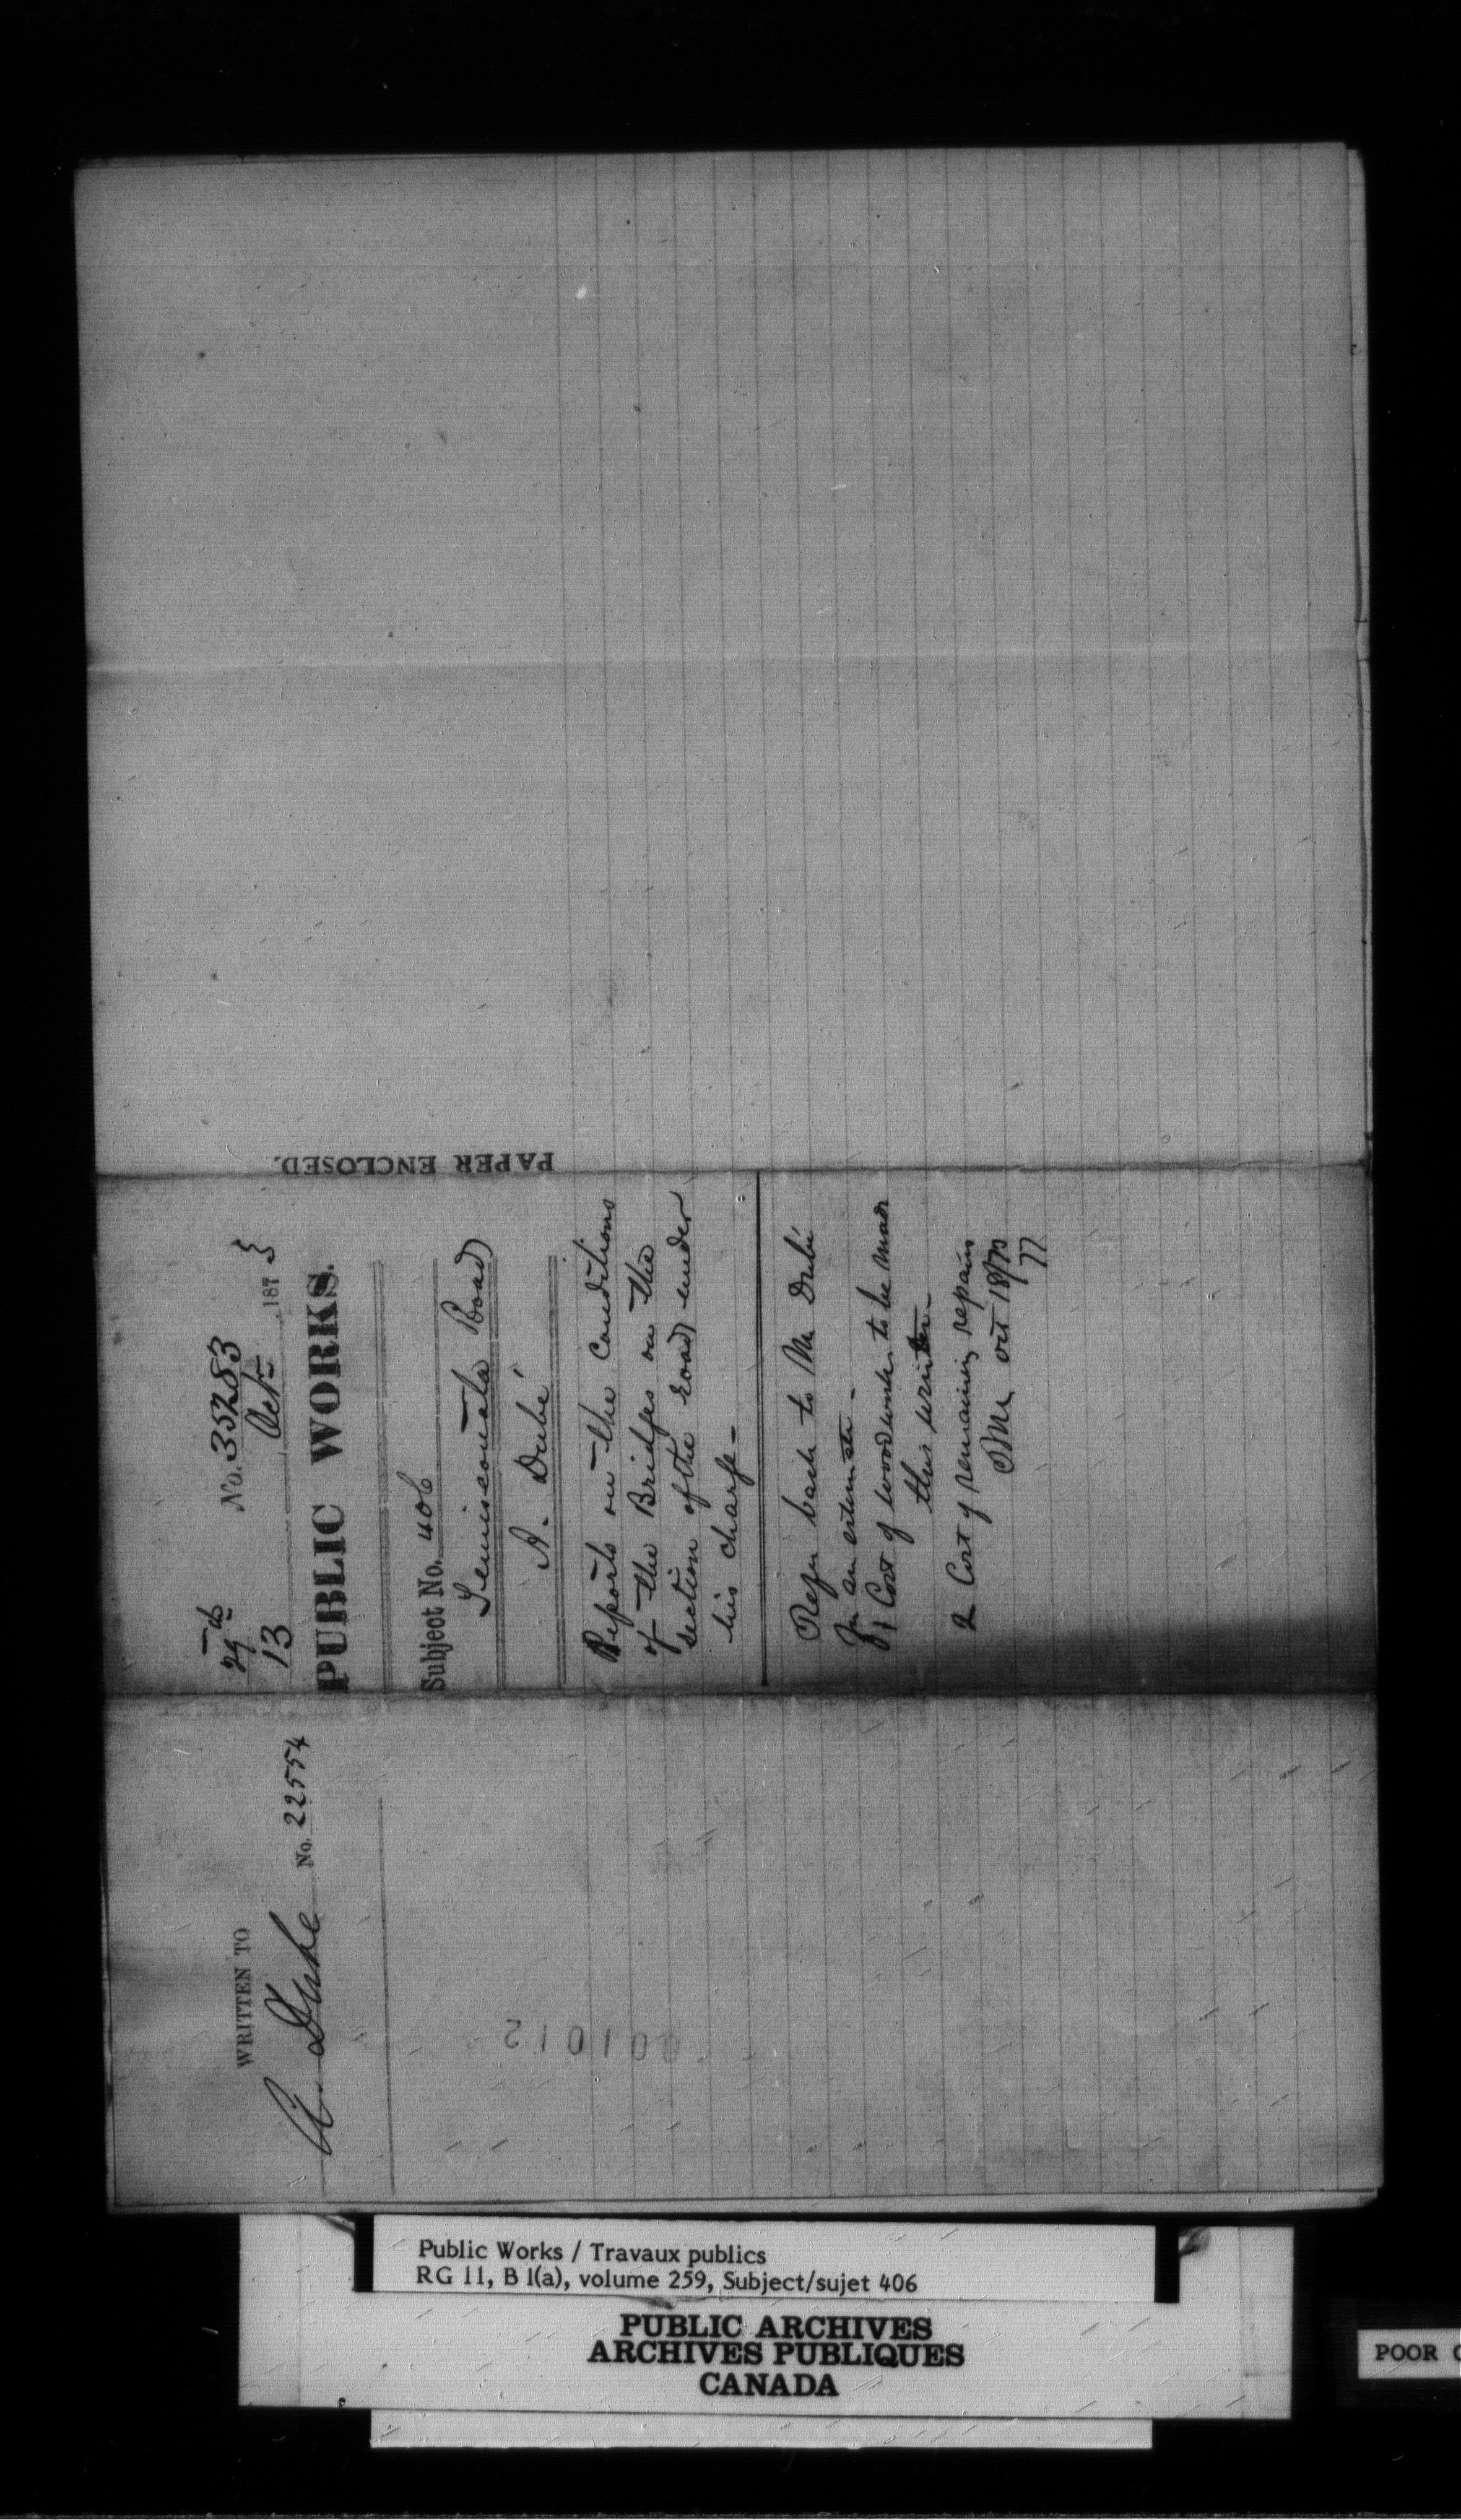 WRITTEN TO
A. Dube No. 22554
29 No. 35283
13 Octr 1873
PUBLIC WORKS.
Subject No. 406
Temiscouata Road
A. Dubé
Reports on the Conditions
of the Bridges on the
section of the road under
his charge—
Refer back to Mr Dubé
for an estimate—
1 Cost of woodwork to be made
this winter—
2 Cost of remaining repairs
Oct 18/73
PAPER ENCLOSED.
001012
Public Works / Travaux publics
RG 11, B 1(a), volume 259, Subject/sujet 406
PUBLIC ARCHIVES
ARCHIVES PUBLIQUES
CANADA
POOR